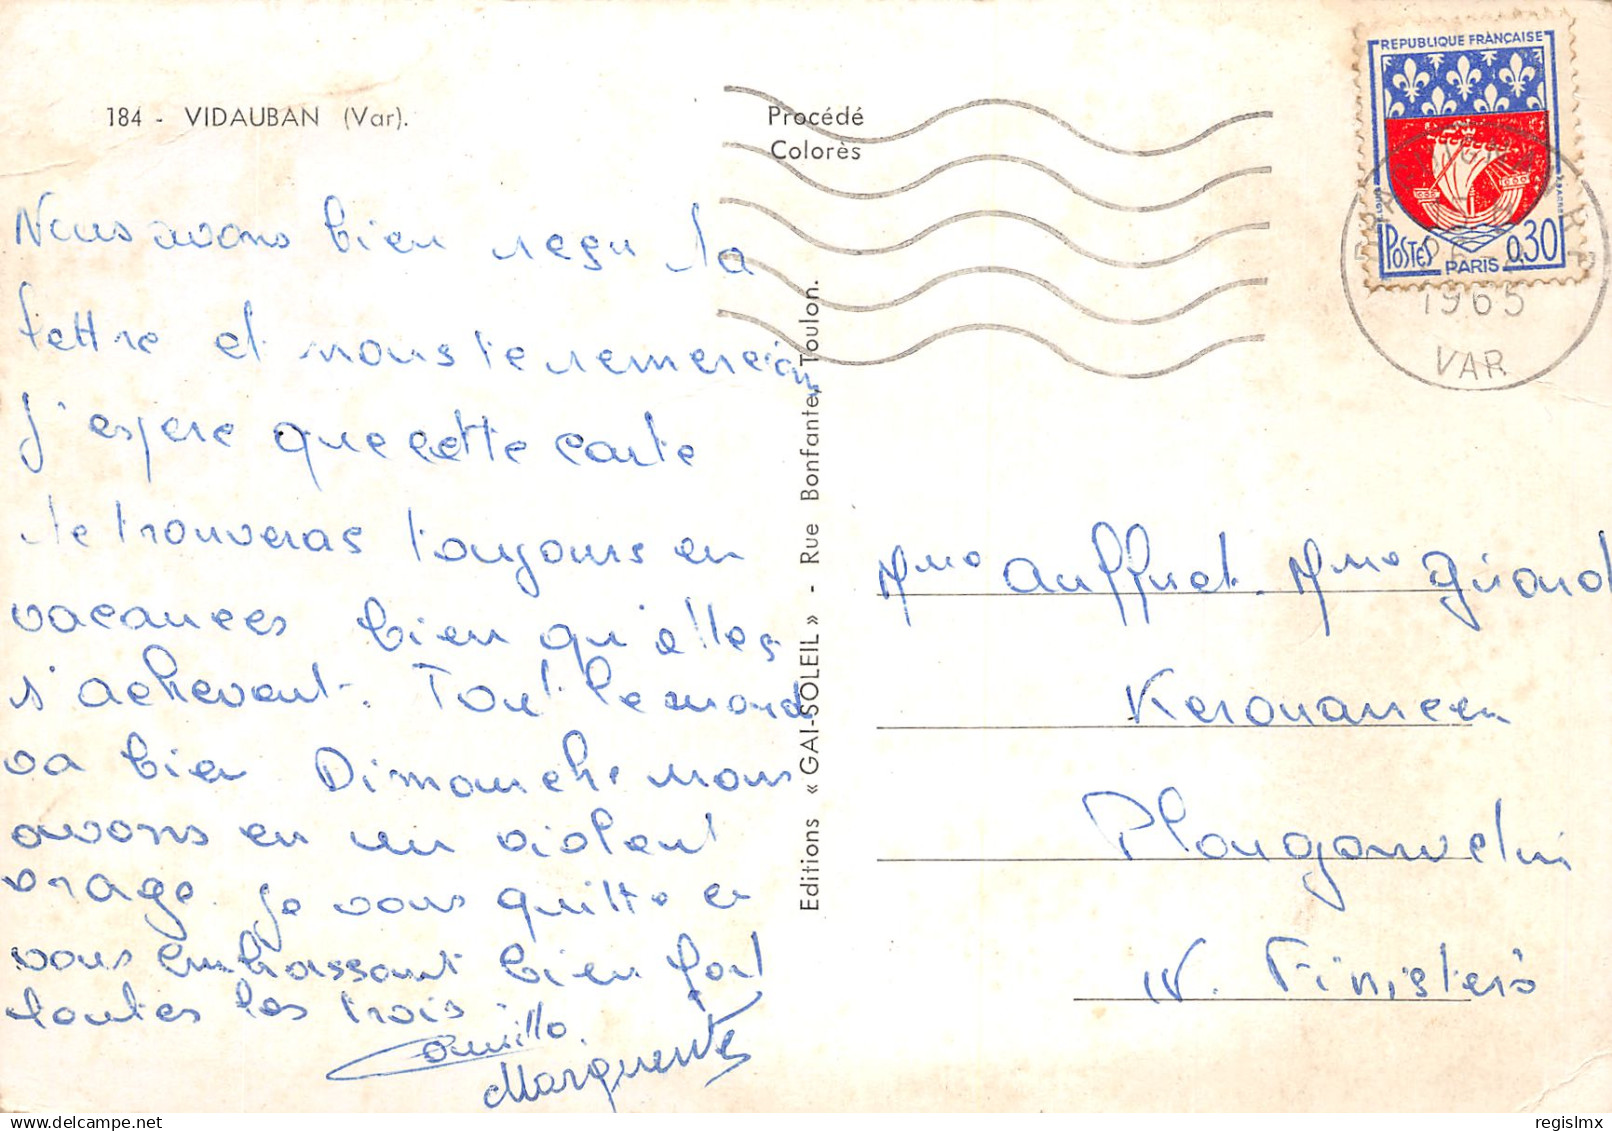 184 - VIDAUBAN (Var).
Procédé
Colorès
Nous avons bien reçu ta
lettre et nous te remercion
J'espere que cette carte
te trouveras toujours en
vacances bien qu'elles
s'achevent. Tout le monde
va bien Dimanche nous
avons eu un violent
orage. Je vous quitte en
vous embrassant bien fort
toutes les trois.
Camille.
Marguerite
Editions « GAI-SOLEIL » - Rue Bonfante, Toulon.
REPUBLIQUE FRANÇAISE
POSTES 0,30
PARIS
1965
VAR
Mme Auffret. Mme Girard
Kerouanen
Plougonvelin
N. Finistère
regislmx